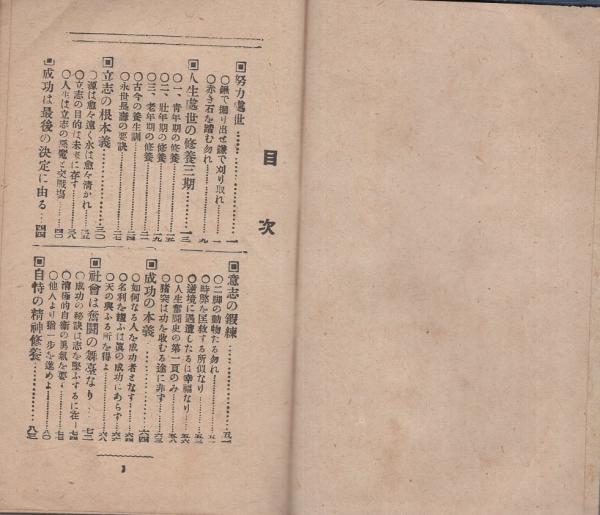 目次
▣努力處世……一
○鍬で掘り出せ鎌で刈り取れ……一
○赤き石を踏む勿れ……九
▣人生處世の修養三期……一三
○一、青年期の修養……一五
○二、壯年期の修養……一九
○三、老年期の修養……二一
○古今の養生訓……二四
○永世長壽の要訣……二七
▣立志の根本義……三〇
○源は愈々遠く水は愈々清かれ……三五
○立志の目的は未來に存す……三八
○人生は立志の惡魔と交戰場……四〇
▣成功は最後の決定に由る……四四
▣意志の鍛練……五一
○二脚の動物たる勿れ……五一
○時弊を匡救する所似なり……五三
○逆境に遭遇したるは幸福なり……五六
○人生奮鬪史の第一頁のみ……五八
○猪突は功を收むる途に非ず……六三
▣成功の本義……六四
○如何なる人を成功者となす……六四
○名利を糧ふは眞の成功にあらず……六六
○天の與ふる所を得よ……六八
▣社會は奮鬪の舞臺なり……七三
○成功の秘訣は志を堅ふするに在り……七四
○情係的自衞の勇氣を要す……七七
○他人より猶一步を進めよ……八〇
▣自恃の精神修養……八三